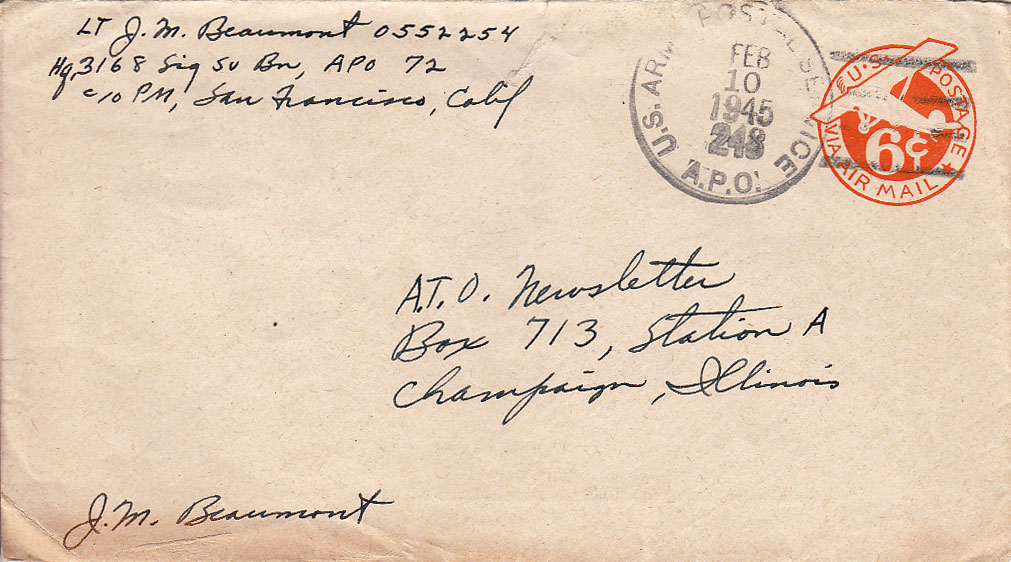 Lt J. M. Beaumont 0552254
Hq, 3168 Sig Sv Bn, APO 72
c/o PM, San Francisco, Calif
U.S. ARMY POSTAL SERVICE
FEB
10
1945
248
A.P.O.
U.S. POSTAGE
6¢
VIA AIR MAIL
A.T.O. Newsletter
Box 713, Station A
Champaign, Illinois
J.M. Beaumont